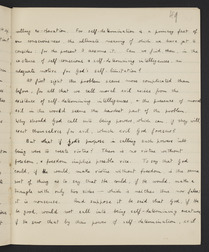 calling to Creation. For self-determination is a primary fact of
our consciousness the ultimate meaning of which we have yet to
consider: for the present I assume it. Can we find then in the
existence of self-conscious & self-determining intelligences an
adequate motive for God's self-limitation?
At first sight the problem seems more complicated than
before: for all that we call moral evil arises from the
existence of self-determining intelligences & the presence of moral
evil in the world seems the hardest part of the problem.
Why should God call into being powers which can, & may, will
set themselves for evil, which evil God foresees?
But what if God's purpose in calling such powers into
being were to create virtue? There is no virtue without
freedom, & freedom implies possible vice. To say that God
could, if He would, make virtue without freedom is the same
sort of thing as to say that He could, if He would, make a
triangle with only two sides — which is neither true nor false:
it is nonsense. And suppose it is said that God, if He
be good, would not call into being self-determining creatures
if He saw that by their power of self-determination, evil